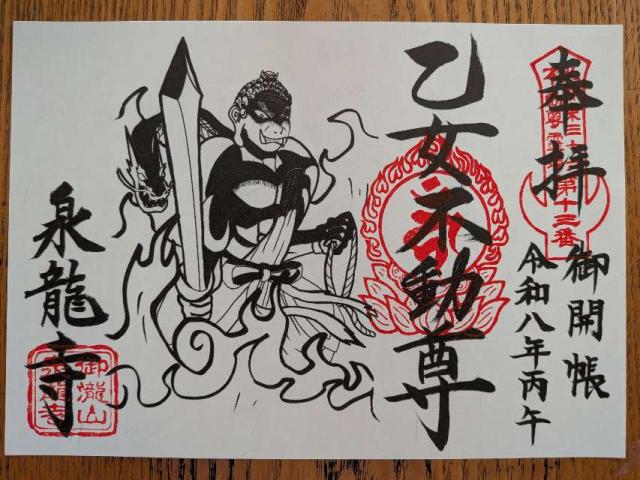 奉拝
第十三番
御開帳
令和八年丙午
乙女不動尊
泉龍寺
御瀧山